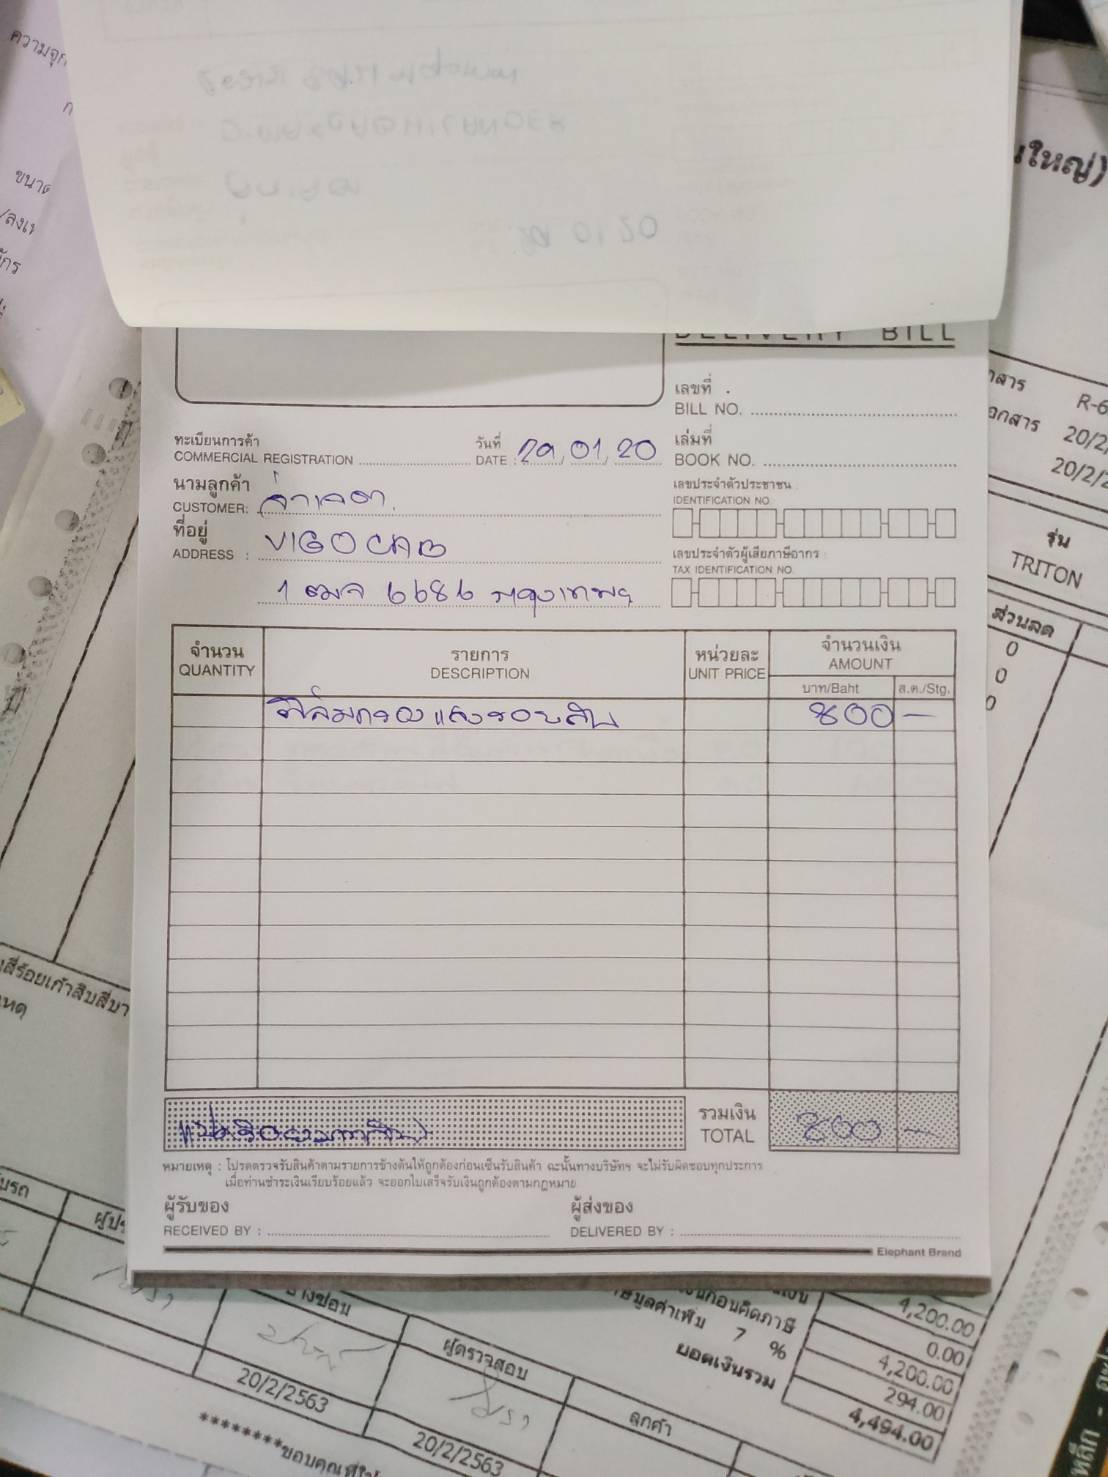 ความจุก
ขนาด
นใหญ่)
DELIVERY BILL
เลขที่
BILL NO.
ทะเบียนการค้า
COMMERCIAL REGISTRATION
วันที่
DATE : 29, 01, 20
เล่มที่
BOOK NO.
นามลูกค้า
CUSTOMER:
เลขประจำตัวประชาชน
IDENTIFICATION NO.
ที่อยู่
ADDRESS : VIGO CAB
เลขประจำตัวผู้เสียภาษีอากร :
TAX IDENTIFICATION NO.
1 ฒล 6686 กรุงเทพฯ
จำนวน
QUANTITY
รายการ
DESCRIPTION
หน่วยละ
UNIT PRICE
จำนวนเงิน
AMOUNT
บาท/Baht
ส.ต./Stg.
ฟิล์มกรองแสงรอบคัน 800 —
แปดร้อยบาทถ้วน
รวมเงิน
TOTAL
800 —
หมายเหตุ : โปรดตรวจรับสินค้าตามรายการข้างต้นให้ถูกต้องก่อนเซ็นรับสินค้า ฉะนั้นทางบริษัทฯ จะไม่รับผิดชอบทุกประการ
เมื่อท่านชำระเงินเรียบร้อยแล้ว จะออกใบเสร็จรับเงินถูกต้องตามกฎหมาย
ผู้รับของ
RECEIVED BY :
ผู้ส่งของ
DELIVERED BY :
Elephant Brand
R-6
20/2/
20/2/2
รุ่น
TRITON
ส่วนลด
0
0
0
สี่ร้อยเก้าสิบสี่บา
ผู้ตรวจสอบ
ลูกค้า
20/2/2563
20/2/2563
********ขอบคุณที่ใ
4,200.00
0.00
4,200.00
7 %
294.00
ยอดเงินรวม
4,494.00